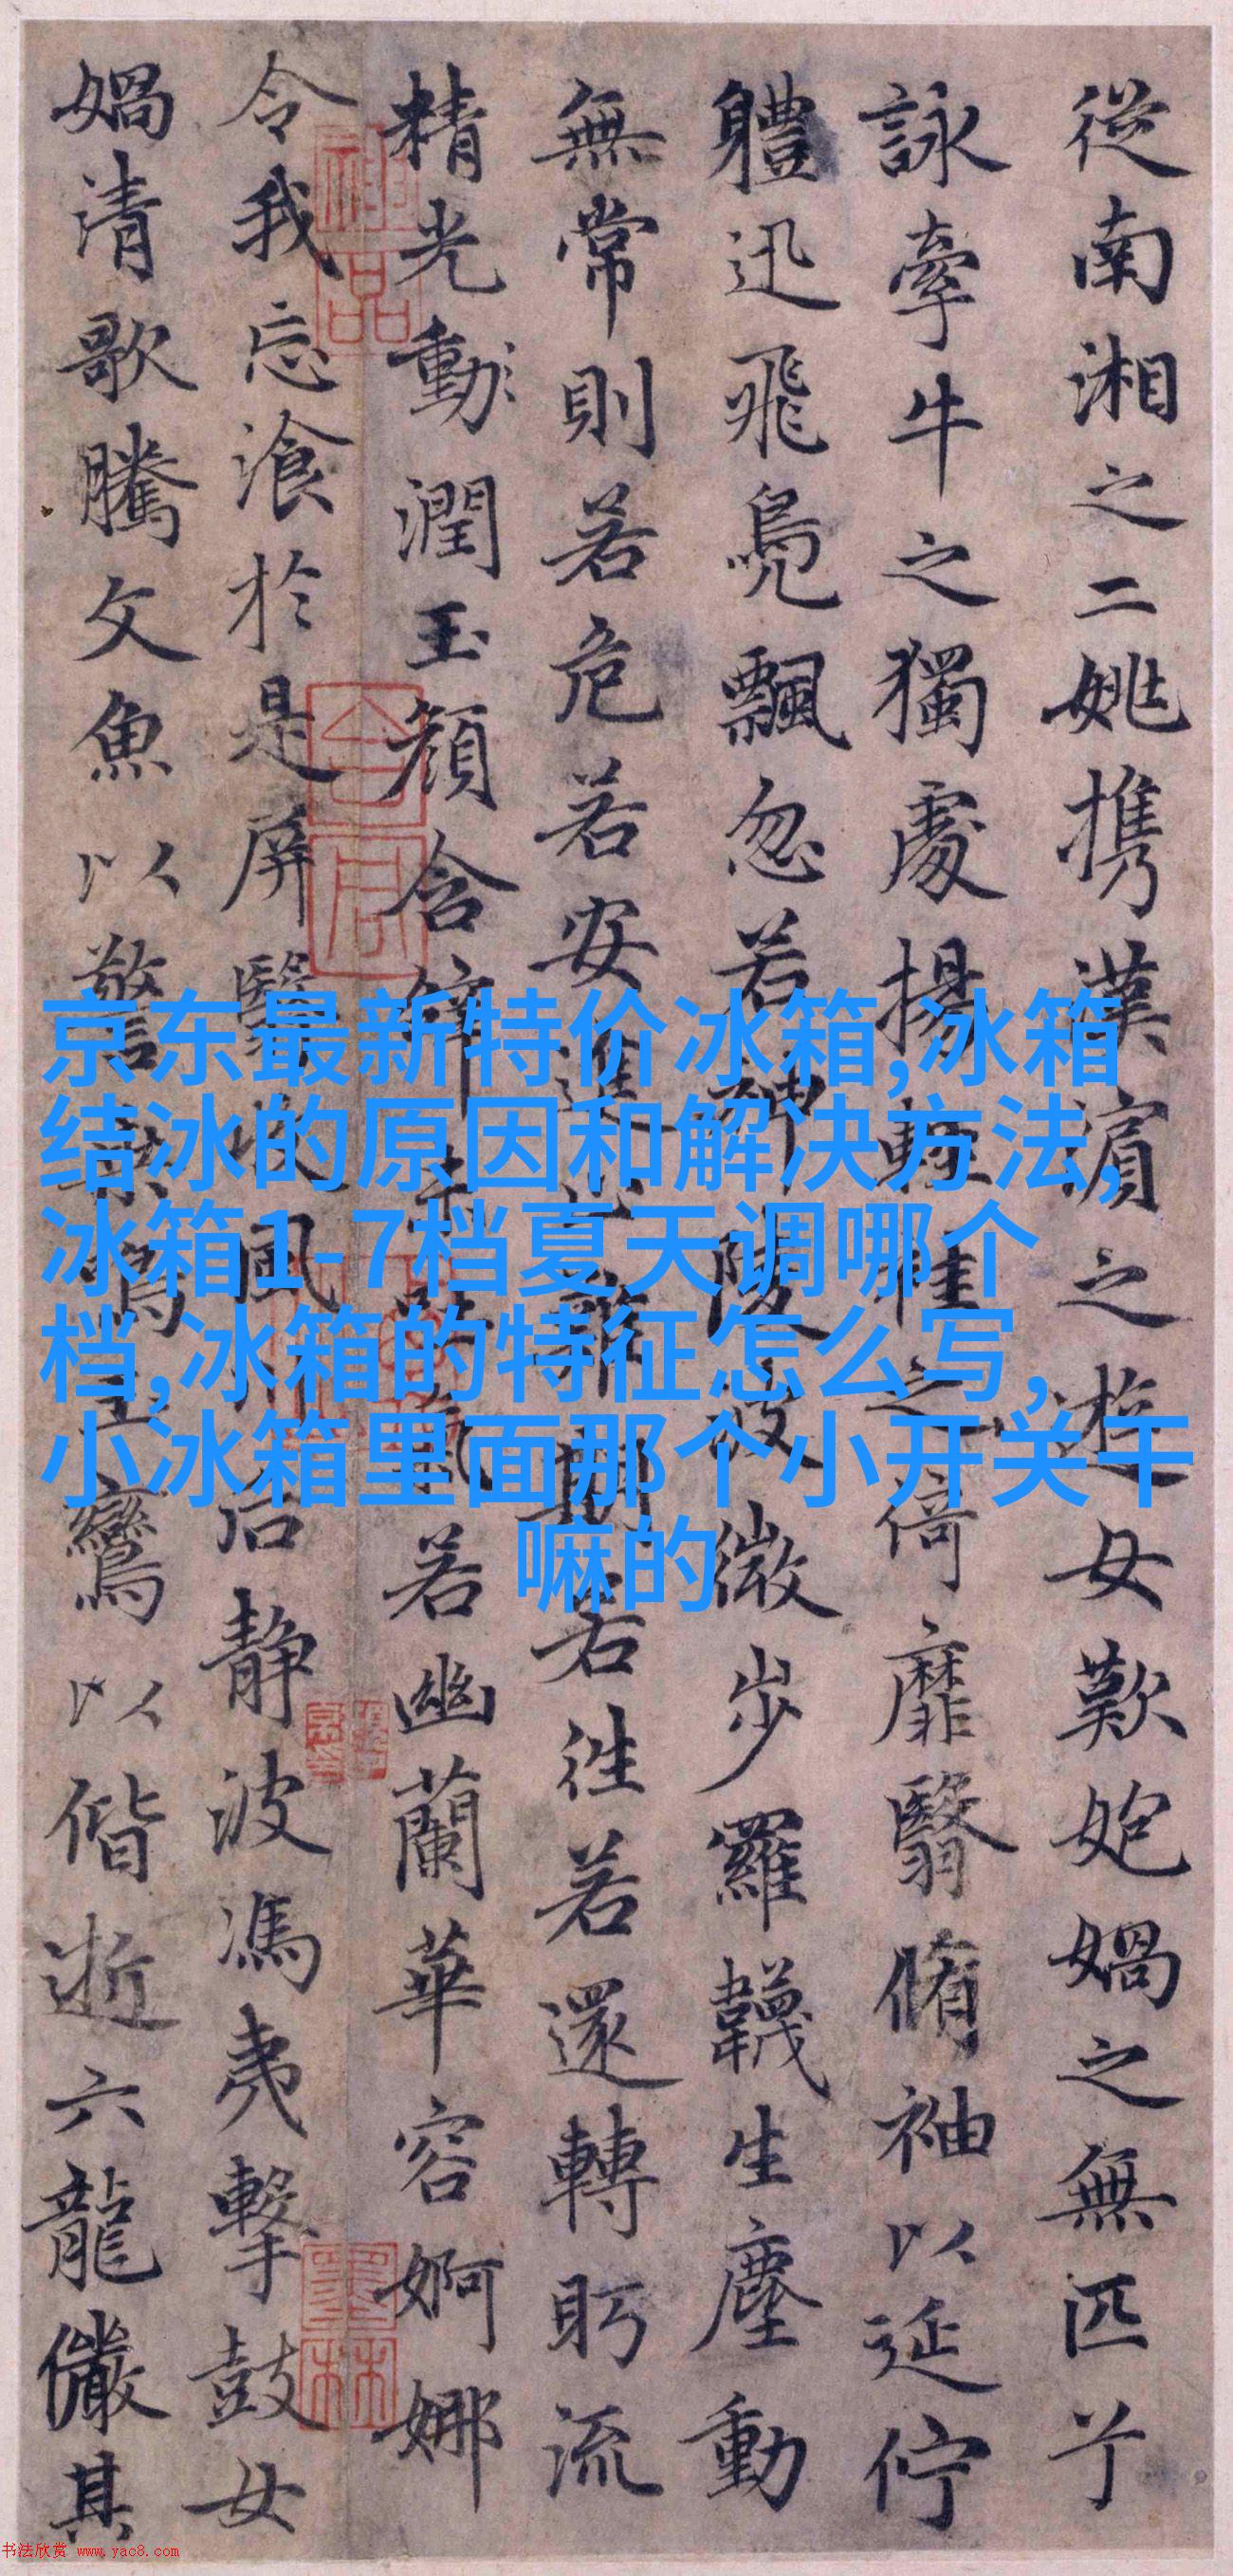 從南湘之二姚携漢濱之遊女歎媧之無匹兮
詠牽牛之獨處揚輕袿之倚靡翳脩袖以延佇
軆迅飛鳧飄忽若神陵波微步羅韈生塵動
無常則若危若安進止難期若往若還轉眄流
精光動潤玉顏含辭未吐氣若幽蘭華容婀娜
令我忘湌於是屏翳收風川后靜波馮夷擊鼓女
媧清歌騰文魚以警乘鳴玉鸞以偕逝六龍儼其
京东最新特价冰箱,冰箱
结冰的原因和解决方法,
冰箱1-7档夏天调哪个
档,冰箱的特征怎么写,
小冰箱里面那个小开关干
嘛的
书法欣赏 www.yac8.com